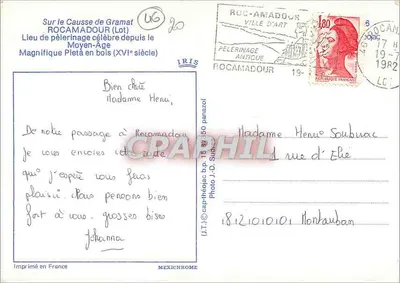 Sur le Causse de Gramat
ROCAMADOUR (Lot)
Lieu de pèlerinage célèbre depuis le
Moyen-Age
Magnifique Pietà en bois (XVIe siècle)
46
20
IRIS
ROC-AMADOUR
VILLE D'ART
PÈLERINAGE
ANTIQUE
ROCAMADOUR 19-
1,80
46 ROCAMADOUR
17 H
19-
1982
LOT
Bien chère
Madame Henri,
De notre passage à Rocamadour
je vous envoies cette carte
qui j'espère vous feras
plaisir. Nous pensons bien
fort à vous. grosses bises
Johanna
CPAPHIL
(J.T.) © cap-théojac b.p.
panazol
Photo J.-D. Sudres
Madame Henri Soubirac
1 rue d'Elie
82000 Montauban
Imprimé en France
MEXICHROME